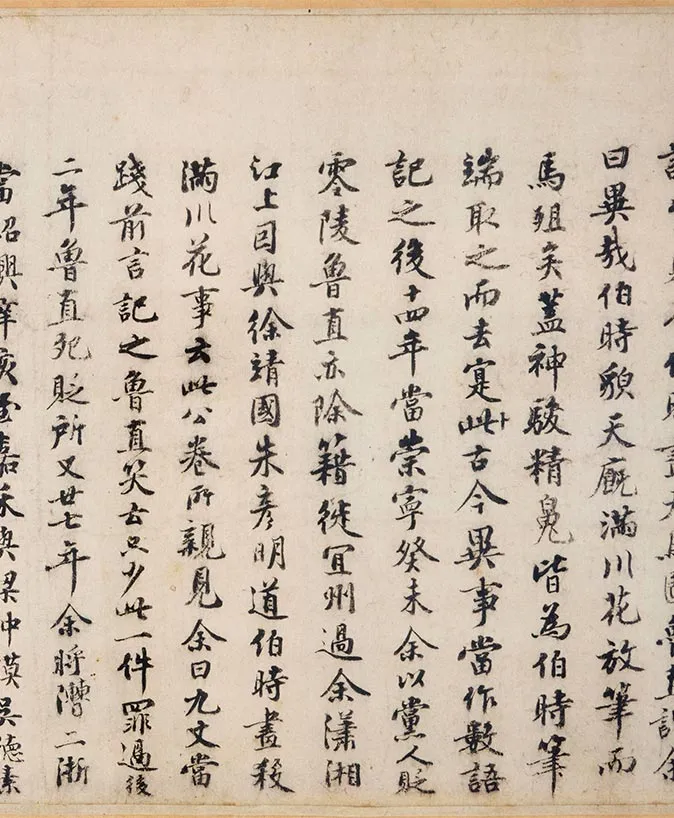 伯時畫天馬圖魯直謂余
曰異哉伯時貌天廐滿川花放筆而
馬殂矣蓋神駿精魄皆為伯時筆
端取之而去寔此古今異事當作數語
記之後十四年當崇寧癸未余以黨人貶
零陵魯直亦除籍徙宜州過余瀟湘
江上因與徐靖國朱彦明道伯時畫殺
滿川花事云此公卷所親見余曰九丈當
踐前言記之魯直笑云只少此一件罪過後
二年魯直死貶所又廿七年余將漕二浙
當紹興辛亥至嘉禾與梁仲謨吳德素